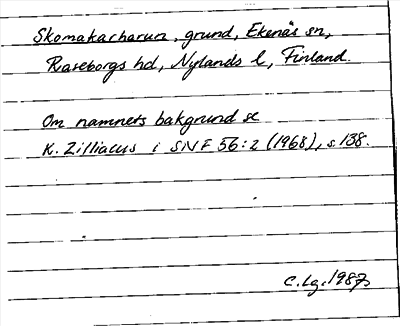 Skomakarharun, grund, Ekenäs sn,
Raseborgs hd, Nylands l, Finland.
Om namnets bakgrund se
K. Zilliacus i SNF 56:2 (1968), s. 138.
C. Lg. 1987